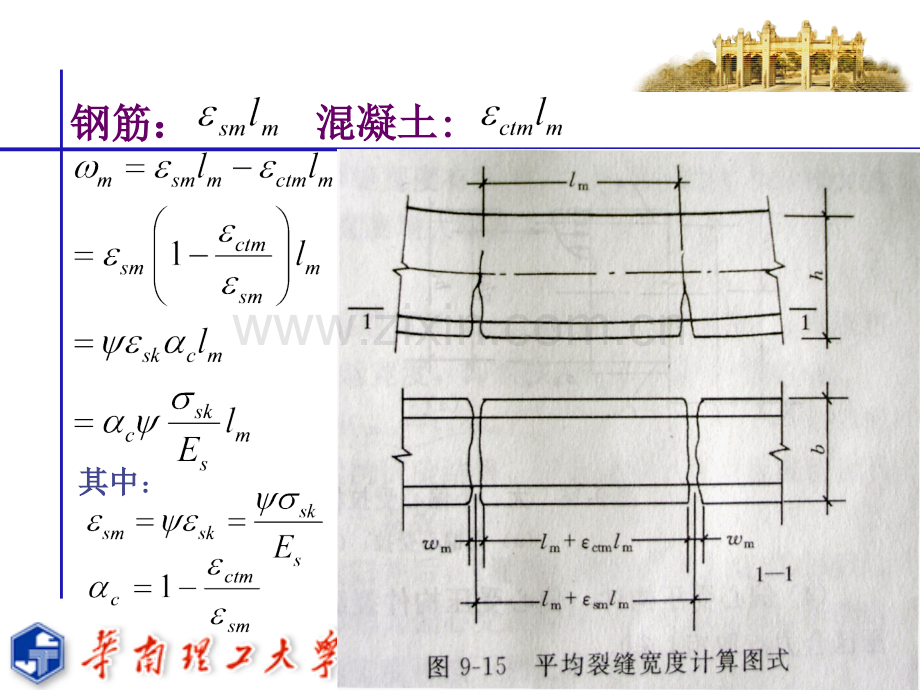 钢筋： ε_{sm}l_m 混凝土: ε_{ctm}l_m
ω_m = ε_{sm}l_m − ε_{ctm}l_m
= ε_{sm}(1 − ε_{ctm}/ε_{sm})l_m
= ψε_{sk}α_c l_m
= α_cψ σ_{sk}/E_s l_m
其中：
ε_{sm} = ψε_{sk} = ψσ_{sk}/E_s
α_c = 1 − ε_{ctm}/ε_{sm}
l_m
h
1 1
b
w_m l_m + ε_{ctm}l_m w_m
1—1
l_m + ε_{sm}l_m
图 9-15 平均裂缝宽度计算图式
www.zixin.com.cn
华南理工大学